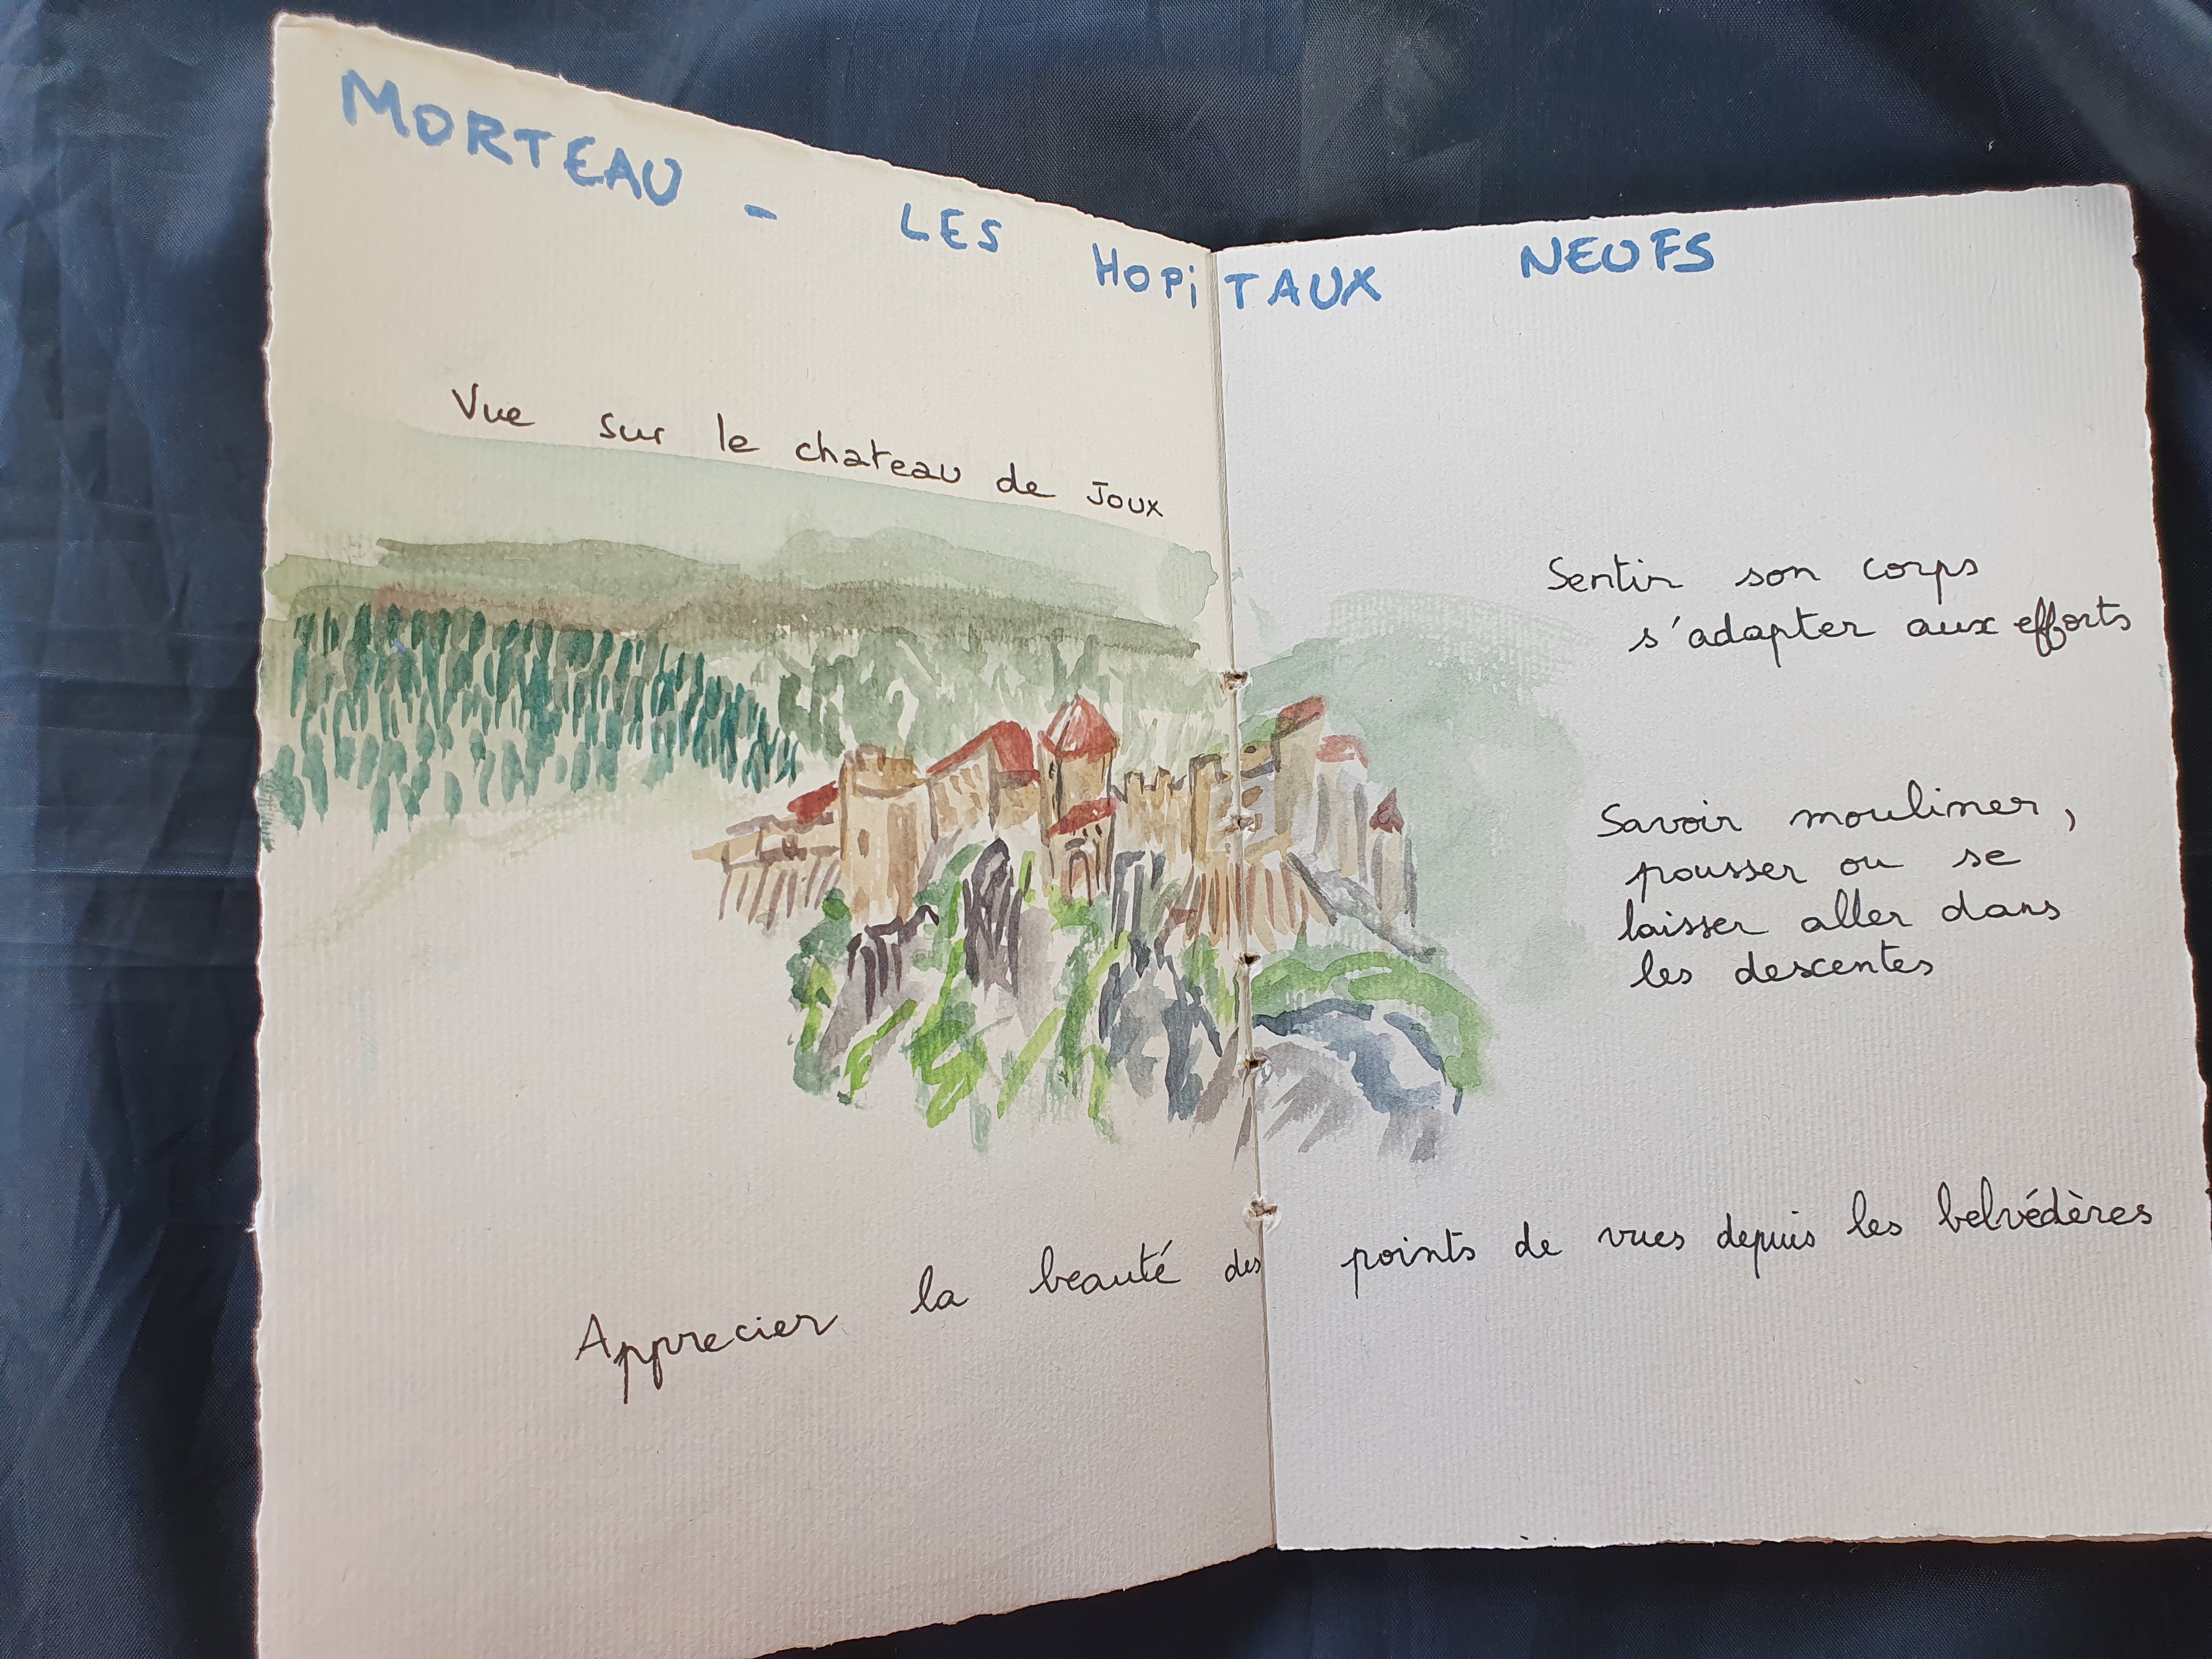 MORTEAU - LES HOPiTAUX NEUFS
Vue sur le chateau de Joux
Sentir son corps
s'adapter aux efforts
Savoir mouliner,
pousser ou se
laisser aller dans
les descentes
Apprecier la beauté des points de vues depuis les belvédères